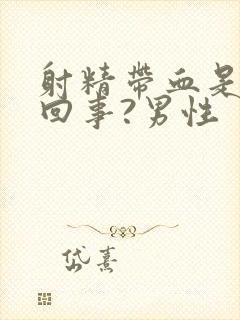 射精带血是
回事?男性
岱熹